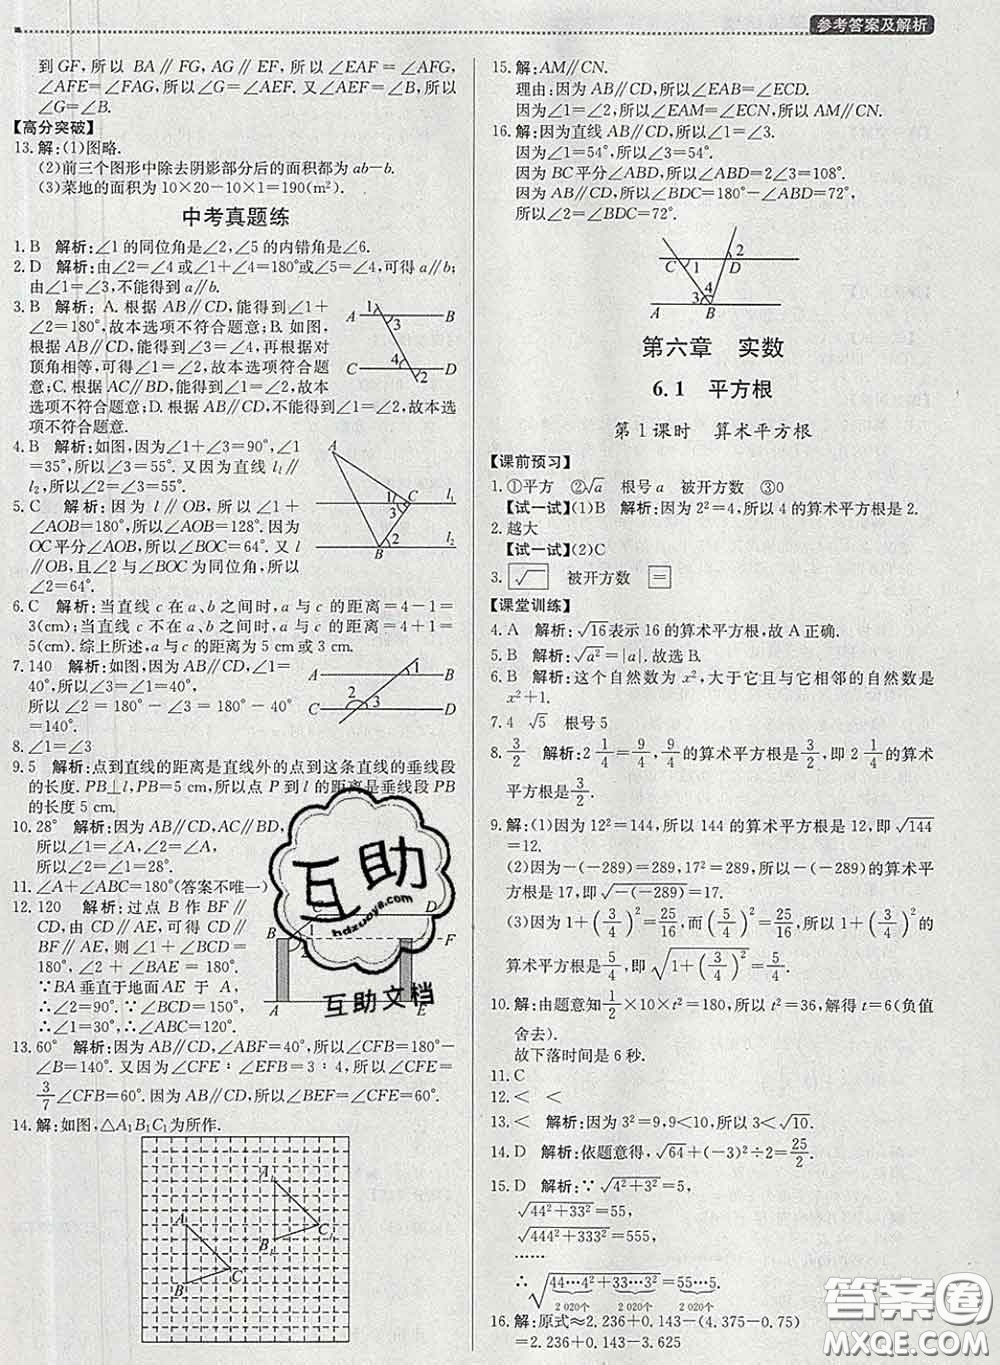 参考答案及解析
到GF,所以 BA∥FG,AG∥EF,所以∠EAF=∠AFG,
∠AFE=∠FAG,所以∠G=∠AEF.又∠AEF=∠B,所以
∠G=∠B.
【高分突破】
13.解:(1)图略.
(2)前三个图形中除去阴影部分后的面积都为ab-b.
(3)菜地的面积为10×20-10×1=190(m²).
中考真题练
1.B 解析:∠1的同位角是∠2,∠5的内错角是∠6.
2.D 解析:由∠2=∠4或∠1+∠4=180°或∠5=∠4,可得a∥b;
由∠1=∠3,不能得到a∥b.
3.B 解析:A.根据AB∥CD,能得到∠1+
∠2=180°,故本选项不符合题意;B.如图,
根据AB∥CD,能得到∠3=∠4,再根据对
顶角相等,可得∠1=∠2,故本选项符合题
意;C.根据AC∥BD,能得到∠1=∠2,故本
选项不符合题意;D.根据AB∥CD,不能得到∠1=∠2,故本选
项不符合题意.
1
A 3 B
4
C 2 D
4.B 解析:如图,因为∠1+∠3=90°,∠1=
35°,所以∠3=55°.又因为直线l₁∥
l₂,所以∠2=∠3=55°.
5.C 解析:因为l∥OB,所以∠1+
∠AOB=180°,所以∠AOB=128°.因为
OC平分∠AOB,所以∠BOC=64°.又l
∥OB,且∠2与∠BOC为同位角,所以
∠2=64°.
A
1 C l₁
3
2 l₂
B
6.C 解析:当直线c在a、b之间时,a与c的距离=4-1=
3(cm);当直线c不在a、b之间时,a与c的距离=4+1=
5(cm).综上所述,a与c的距离为5 cm或3 cm.
7.140 解析:如图,因为AB∥CD,∠1=
40°,所以∠3=∠1=40°,
所以∠2=180°-∠3=180°-40°
=140°.
A 1 B
2
C 3 D
8.∠1=∠3
9.5 解析:点到直线的距离是直线外的点到这条直线的垂线段
的长度.PB⊥l,PB=5 cm,所以点P到l的距离是垂线段PB
的长度5 cm.
10.28° 解析:因为AB∥CD,AC∥BD,
所以∠1=∠A,∠2=∠A,
所以∠2=∠1=28°.
11.∠A+∠ABC=180°(答案不唯一)
12.120 解析:过点B作BF∥
CD,由CD∥AE,可得CD∥
BF∥AE,则∠1+∠BCD=
180°,∠2+∠BAE=180°.
∵BA垂直于地面AE于A,
∴∠2=90°.∵∠BCD=150°,
∴∠1=30°,∴∠ABC=120°.
C D
B 1 F
A E
13.60° 解析:因为AB∥CD,∠ABF=40°,所以∠CFB=180°-
∠B=140°.又因为∠CFE∶∠EFB=3∶4,所以∠CFE=
3/7∠CFB=60°.因为AB∥CD,所以∠BEF=∠CFE=60°.
14.解:如图,△A₁B₁C₁为所作.
A₁
A
B₁ C₁
B C
15.解:AM∥CN.
理由:因为AB∥CD,所以∠EAB=∠ECD.
因为∠1=∠2,所以∠EAM=∠ECN,所以AM∥CN.
16.解:因为直线AB∥CD,所以∠1=∠3.
因为∠1=54°,所以∠3=54°.
因为BC平分∠ABD,所以∠ABD=2∠3=108°.
因为AB∥CD,所以∠BDC=180°-∠ABD=72°,
所以∠2=∠BDC=72°.
2
C 1 D
4
3
A B
第六章 实数
6.1 平方根
第1课时 算术平方根
【课前预习】
1.①平方 ②√a 根号a 被开方数 ③0
【试一试】(1)B 解析:因为2²=4,所以4的算术平方根是2.
2.越大
【试一试】(2)C
3.√ 被开方数 =
【课堂训练】
4.A 解析:√16表示16的算术平方根,故A正确.
5.B 解析:√a²=|a|.故选B.
6.B 解析:因为这个自然数为x²,大于它且与它相邻的自然数是
x²+1.
7.4 √5 根号5
8.3/2 解析:2 1/4=9/4,9/4的算术平方根是3/2,即2 1/4的算术
平方根是3/2.
9.解:(1)因为12²=144,所以144的算术平方根是12,即√144
=12.
(2)因为-(-289)=289,17²=289,所以-(-289)的算术平
方根是17,即√-(-289)=17.
(3)因为1+(3/4)²=25/16,而(5/4)²=25/16,所以1+(3/4)²的
算术平方根是5/4,即√1+(3/4)²=5/4.
10.解:由题意知1/2×10×t²=180,所以t²=36,解得t=6(负值
舍去).
故下落时间是6秒.
11.C
12.< <
13.< 解析:因为3²=9,9<10,所以3<√10.
14.D 解析:依题意得,√64+(-3)²÷2=25/2.
15.D 解析:∵√4²+3²=5,
√44²+33²=55,
√444²+333²=555,
……
∴√44…4²+33…3²=55…5.
2 020个 2 020个 2 020个
16.解:原式≈2.236+0.143-(4.375-0.75)
=2.236+0.143-3.625
互助
hdzuoye.com
互助文档
答案圈
MXQE.COM